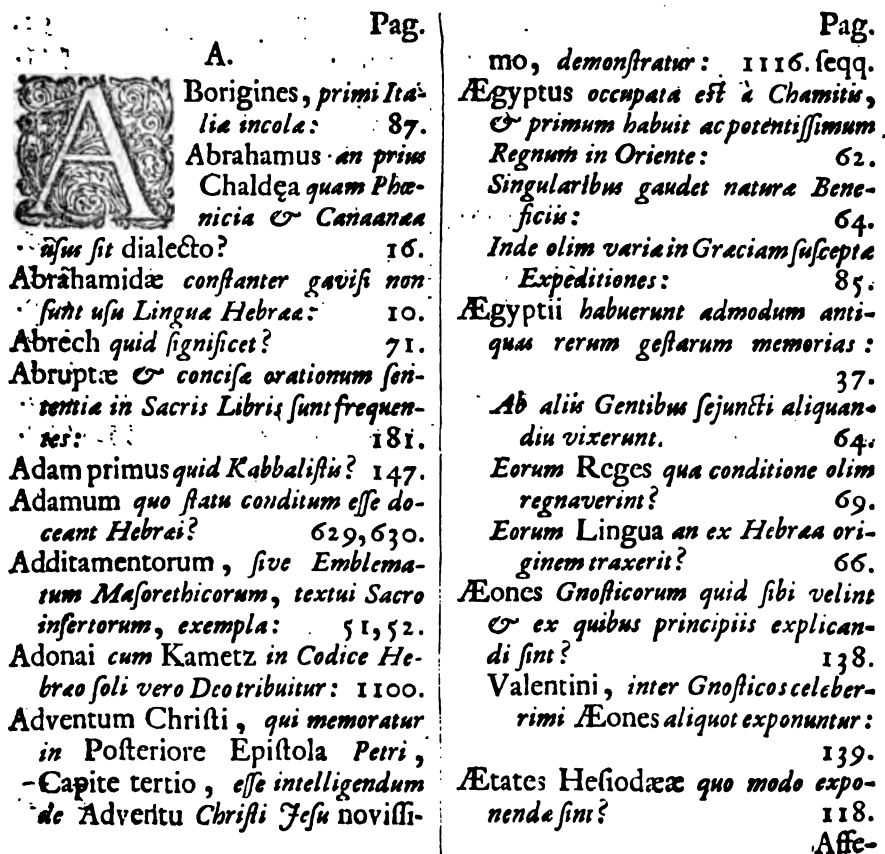 Pag.
A.
ABorigines, primi Ita-
liæ incolæ: 87.
Abrahamus an prius
Chaldęa quam Phœ-
nicia & Canaanæa
uſus ſit dialecto? 16.
Abrahamidæ conſtanter gaviſi non
ſunt uſu Linguæ Hebrææ: 10.
Abrech quid ſignificet? 71.
Abruptæ & conciſæ orationum ſen-
tentiæ in Sacris Libris ſunt frequen-
tes: 181.
Adam primus quid Kabbaliſtis? 147.
Adamum quo ſtatu conditum eſſe do-
ceant Hebræi? 629,630.
Additamentorum, ſive Emblema-
tum Maſorethicorum, textui Sacro
inſertorum, exempla: 51,52.
Adonai cum Kametz in Codice He-
bræo ſoli vero Deo tribuitur: 1100.
Adventum Chriſti, qui memoratur
in Poſteriore Epiſtola Petri,
Capite tertio, eſſe intelligendum
de Adventu Chriſti Jeſu noviſſi-
Pag.
mo, demonſtratur: 1116. ſeqq.
Ægyptus occupata eſt à Chamitis,
& primum habuit ac potentiſſimum
Regnum in Oriente: 62.
Singularibus gaudet naturæ Bene-
ficiis: 64.
Inde olim variæ in Græciam ſuſceptæ
Expeditiones: 85.
Ægyptii habuerunt admodum anti-
quas rerum geſtarum memorias:
37.
Ab aliis Gentibus ſejuncti aliquan-
diu vixerunt. 64.
Eorum Reges qua conditione olim
regnaverint? 69.
Eorum Lingua an ex Hebræa ori-
ginem traxerit? 66.
Æones Gnoſticorum quid ſibi velint
& ex quibus principiis explican-
di ſint? 138.
Valentini, inter Gnoſticos celeber-
rimi Æones aliquot exponuntur:
139.
Ætates Heſiodææ quo modo expo-
nendæ ſint? 118.
Affe-